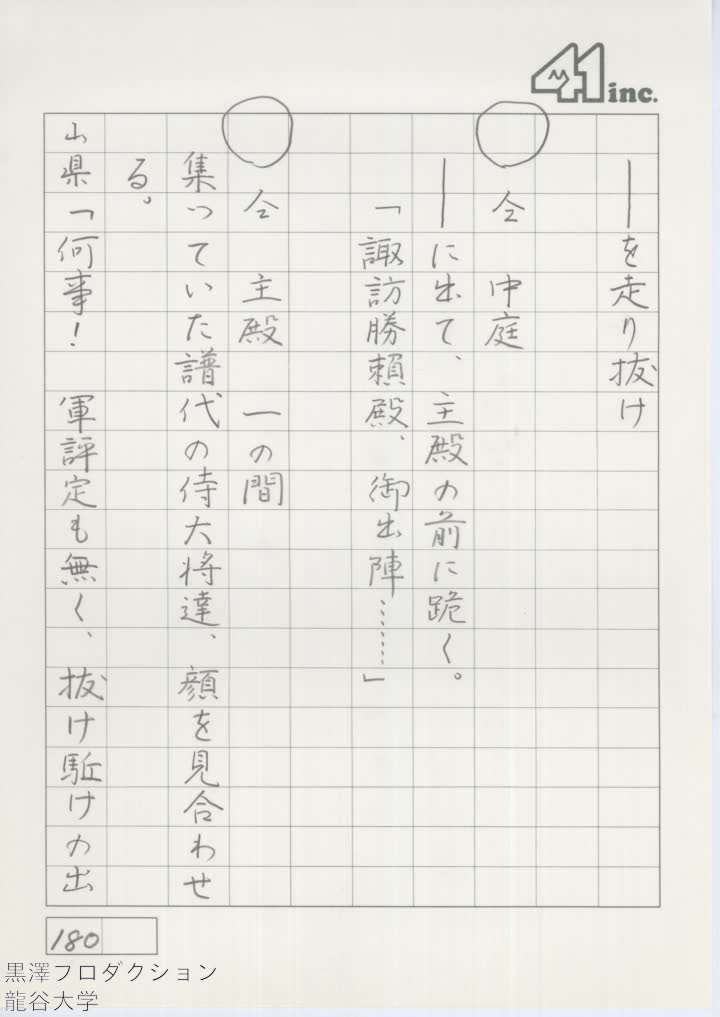 41 inc.
――を走り抜け
○仝 中庭
――に出て、主殿の前に跪く。
「諏訪勝頼殿、御出陣……」
○仝 主殿 一の間
集っていた譜代の侍大将達、顔を見合わせ
る。
山県「何事! 軍評定も無く、抜け駈けの出
180
黒澤プロダクション
龍谷大学